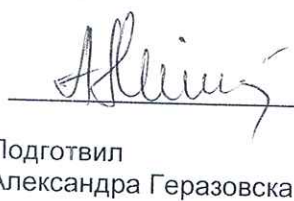 Подготвил
Александра Геразовска